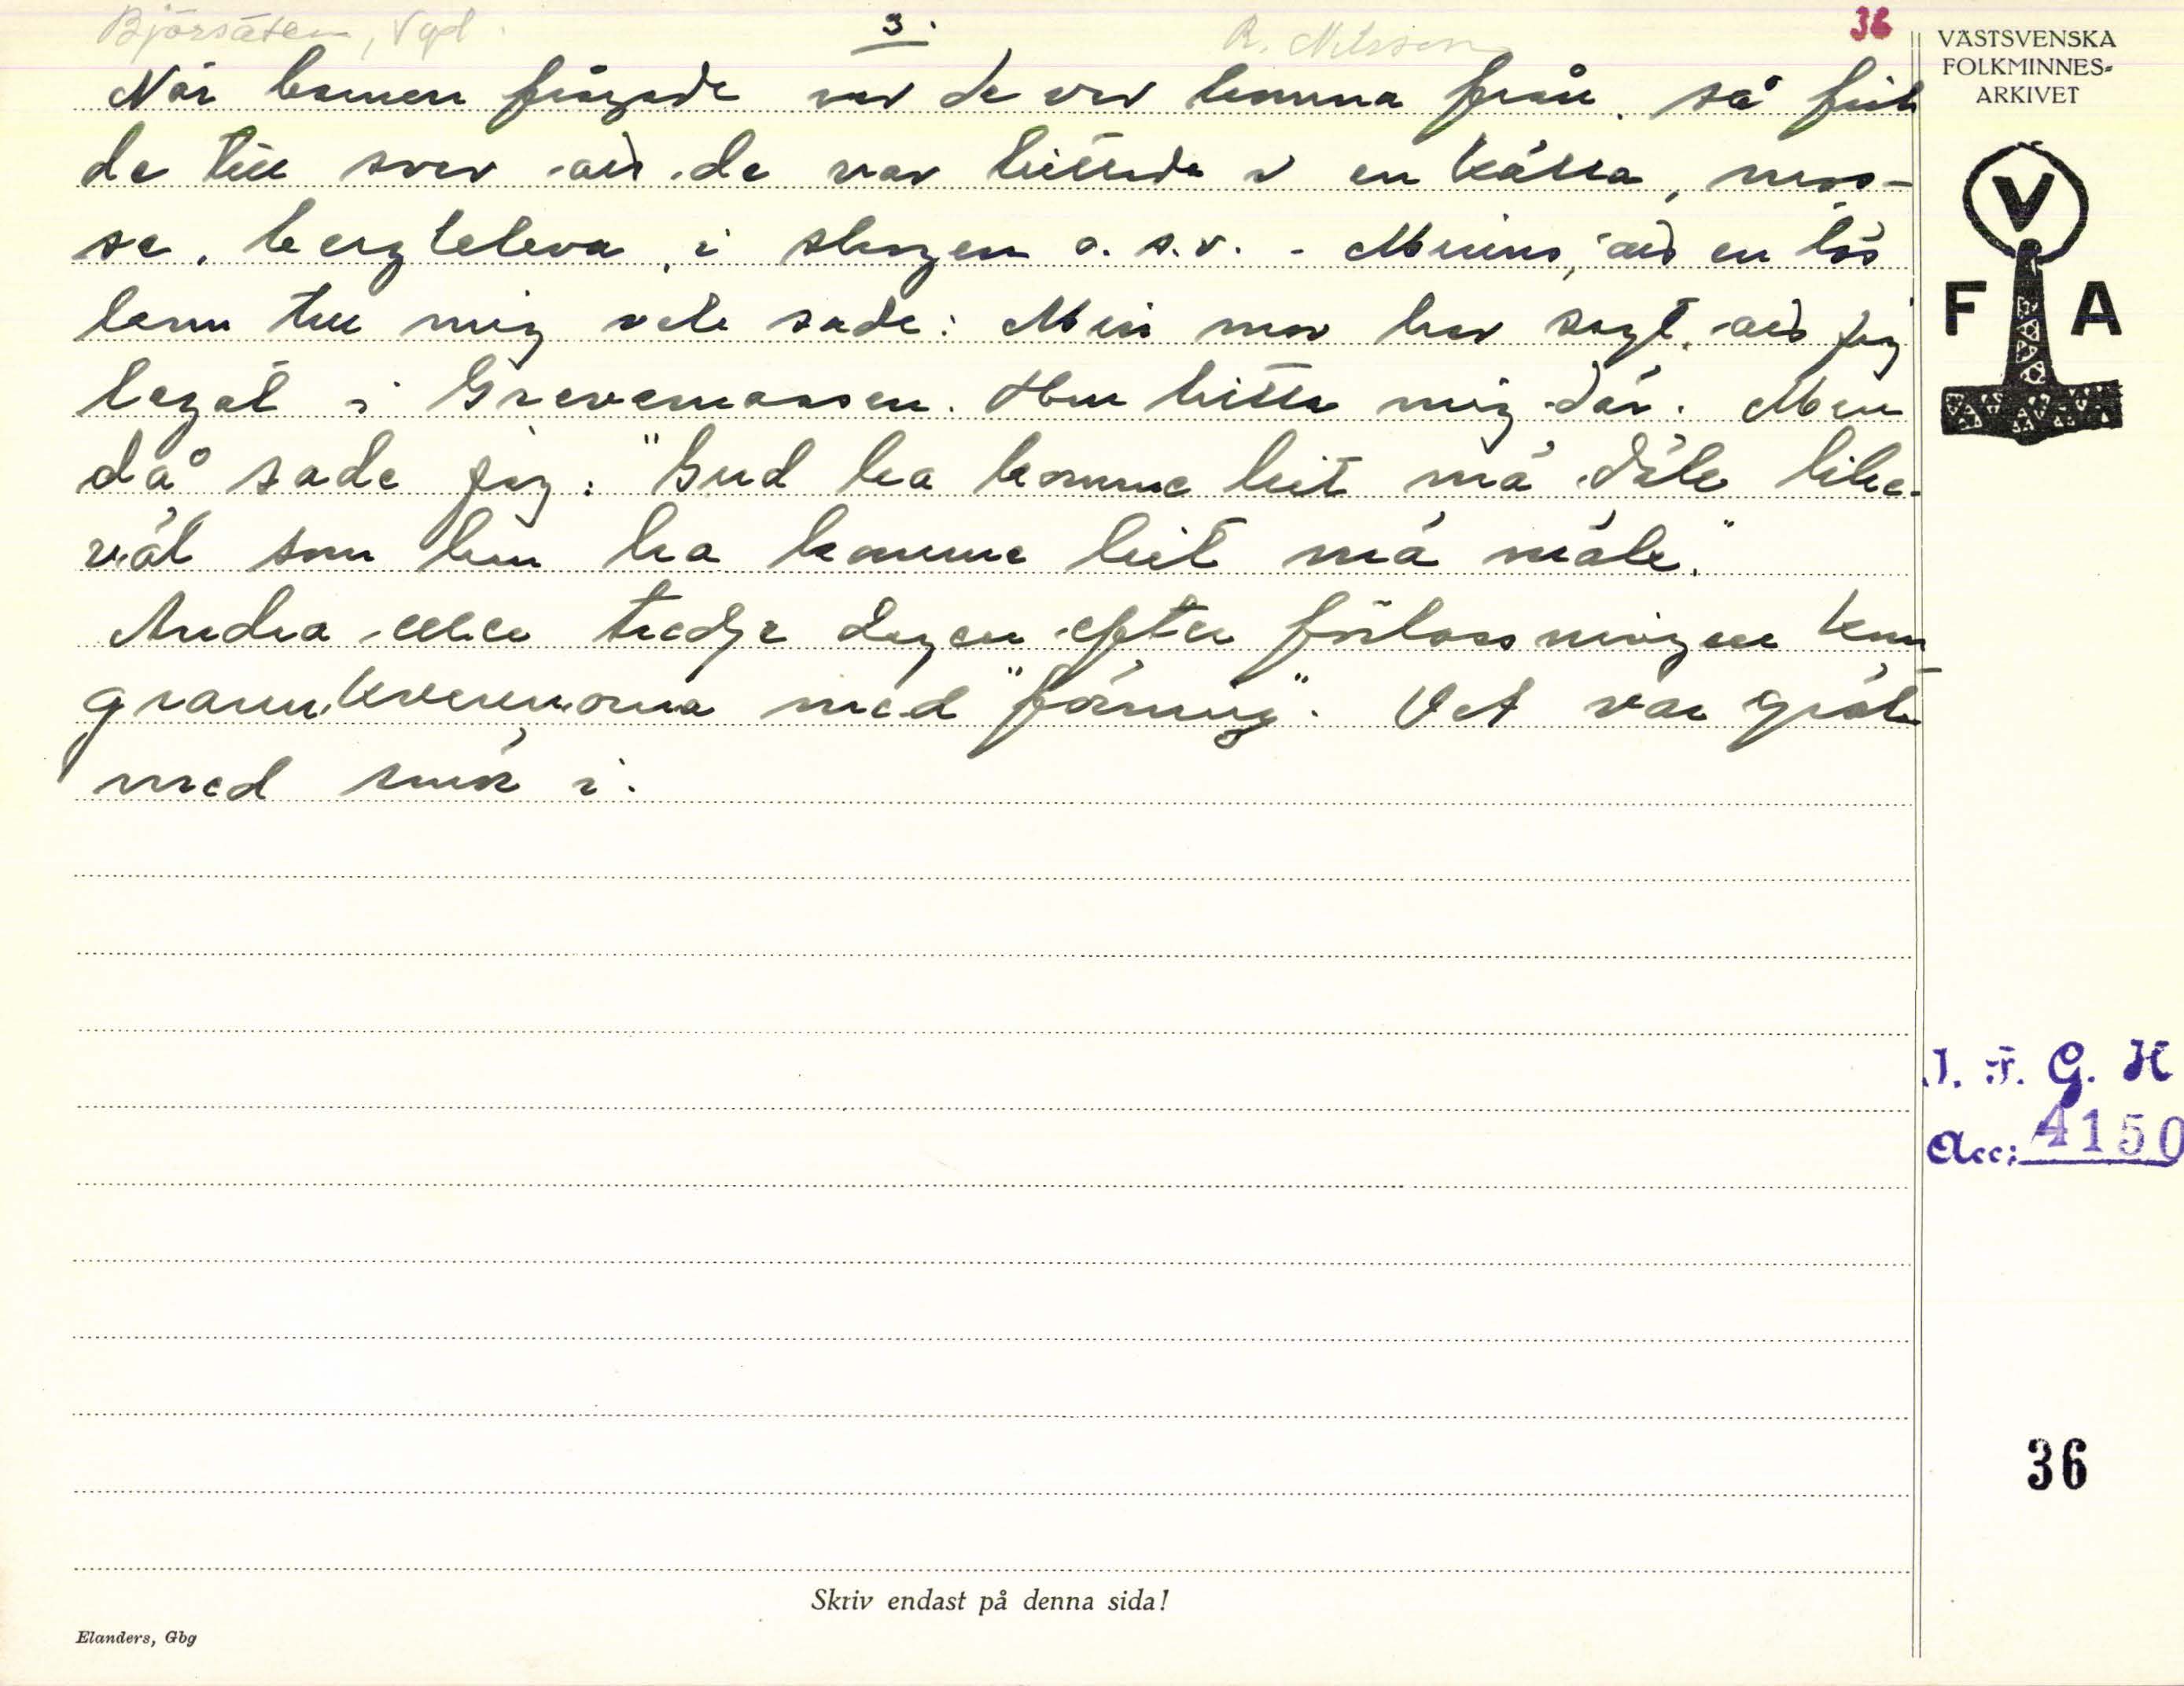 Björsäter, Vgl.
3.
R. Nilsson
36
När barnen frågade var de var komna från, så fick
de till svar att de var hittade i en källa, mos-
se, bergkleva, i skogen o.s.v. - Minns, att en
barn till mig sade: Min mor har sagt, att jag
legat i Grevemossen. Hon hitta mig där. Men
då sade jag: "Gud ha komme hit mä däk like-
väl som hun ha komme hit mä mäk."
Andra eller tredje dagen efter förlossningen kom
grannkvinnorna med "förning". Det var gröt
med smör i.
VÄSTSVENSKA
FOLKMINNES-
ARKIVET
V
F A
I. F. G. H
Acc: 4150
36
Skriv endast på denna sida!
Elanders, Gbg